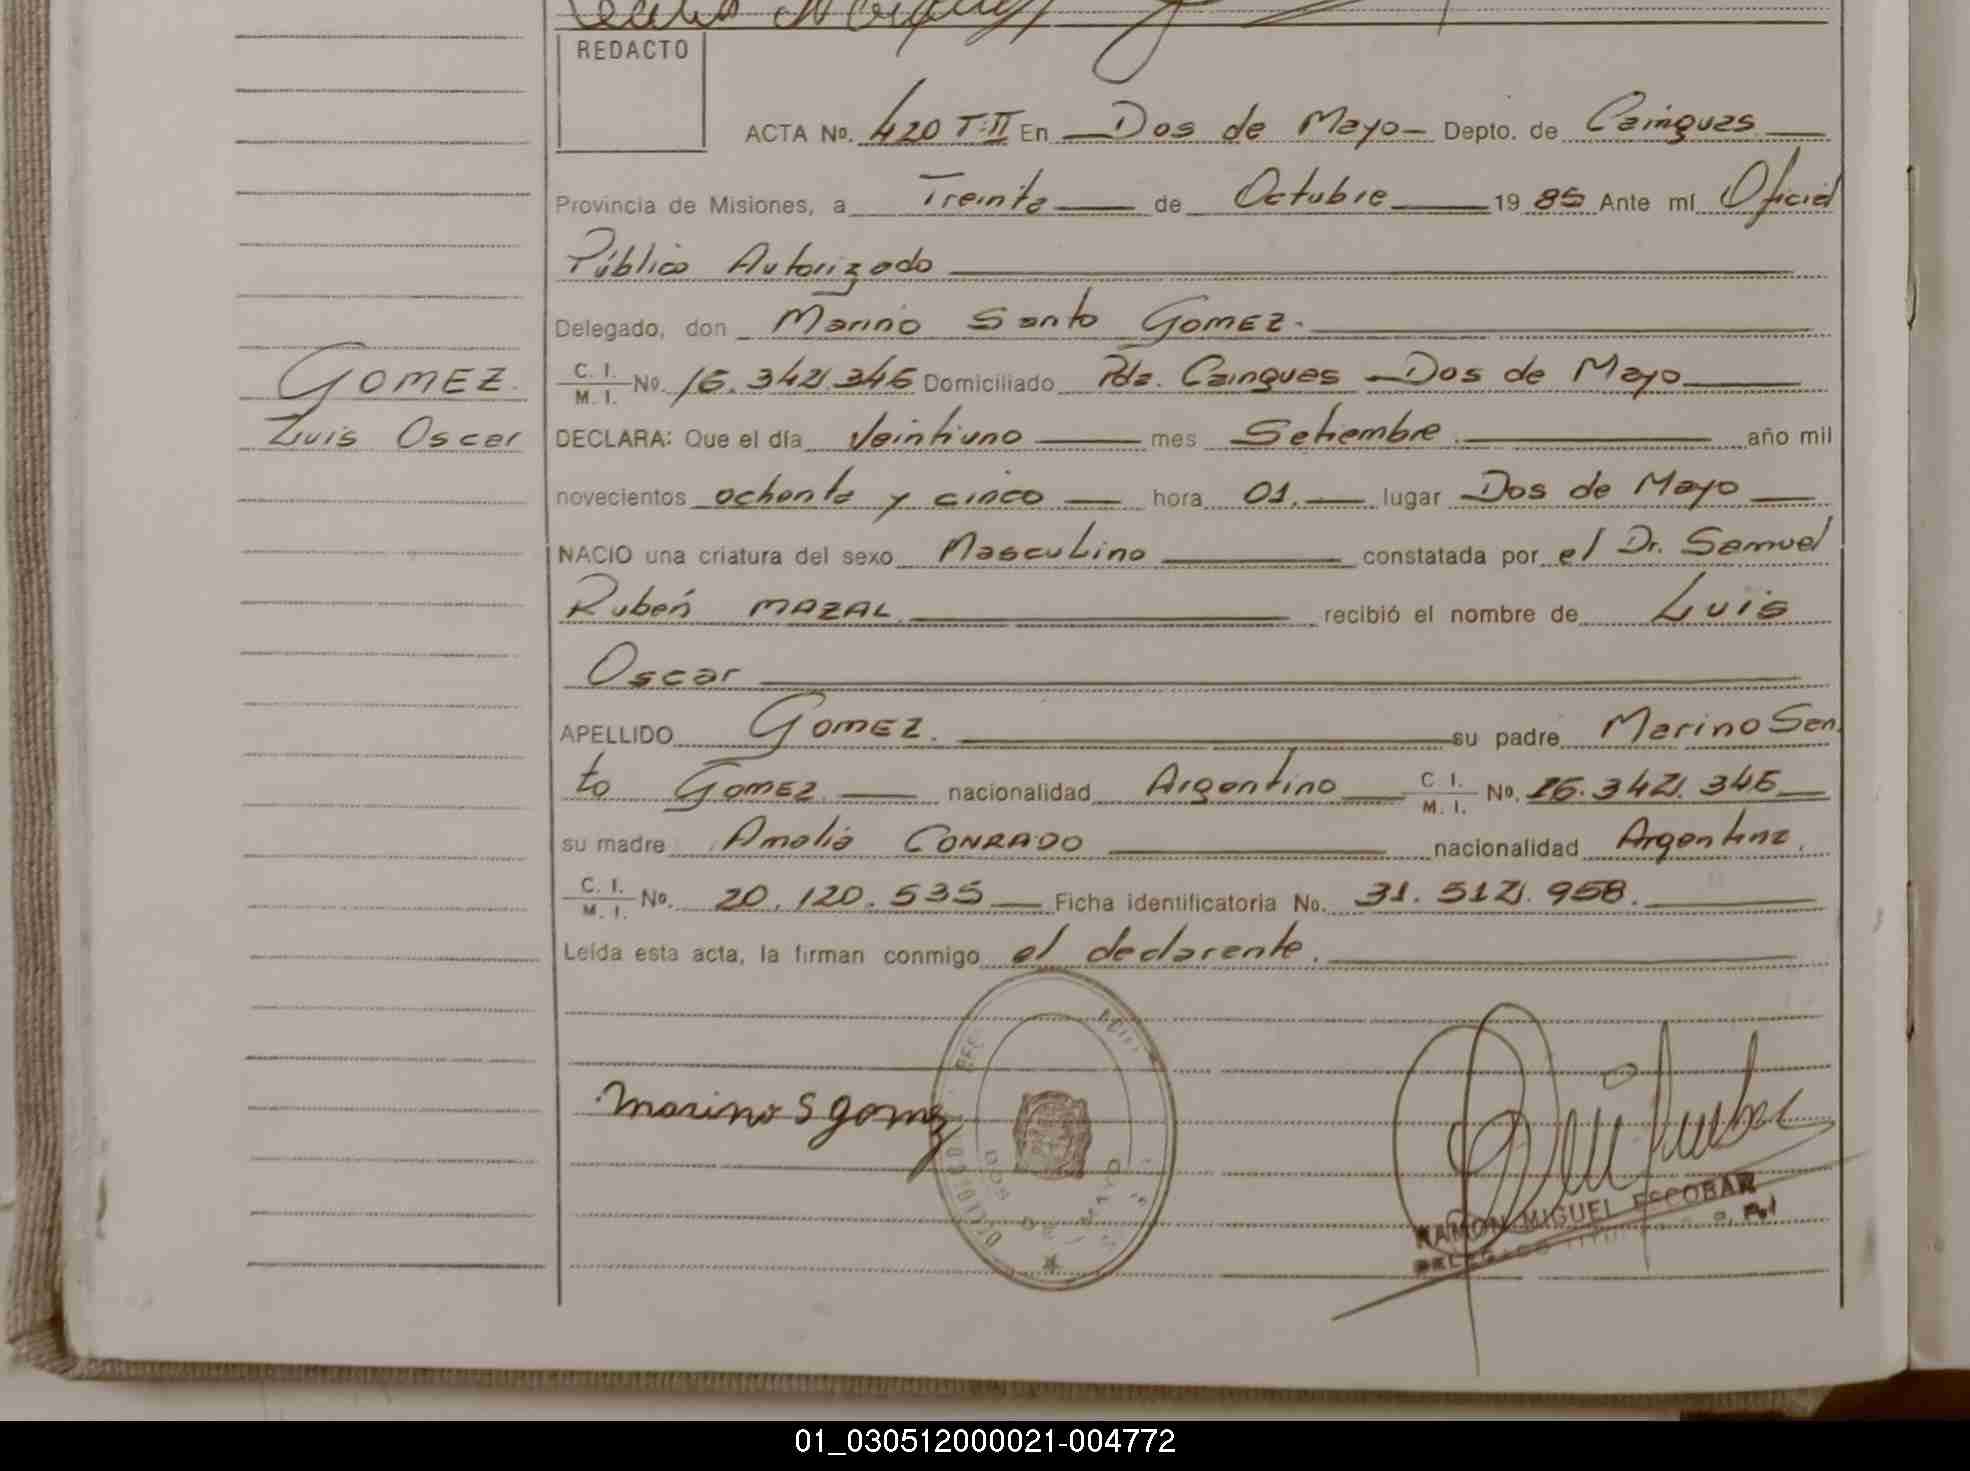 REDACTO
ACTA Nº. 420 T:II En Dos de Mayo Depto. de Cainguas
Provincia de Misiones, a Treinta de Octubre 1985 Ante mí Oficial
Público Autorizado
Delegado, don Marino Santo GOMEZ.
GOMEZ. C. I. / M. I. No. 16.342.346 Domiciliado Pda. Cainguas - Dos de Mayo
Luis Oscar DECLARA: Que el día Veintiuno mes Setiembre año mil
novecientos ochenta y cinco hora 01. lugar Dos de Mayo
NACIO una criatura del sexo Masculino constatada por el Dr. Samuel
Rubén MAZAL recibió el nombre de Luis
Oscar
APELLIDO GOMEZ. su padre Marino San
to GOMEZ. nacionalidad Argentino C. I. / M. I. Nº. 16.342.346
su madre Amalia CONRADO nacionalidad Argentina.
C. I. / M. I. Nº. 20.120.535 Ficha identificatoria No. 31.512.958.
Leída esta acta, la firman conmigo el declarante.
Marino S gomez
DOS DE MAYO
RAMON MIGUEL ESCOBAR
01_030512000021-004772